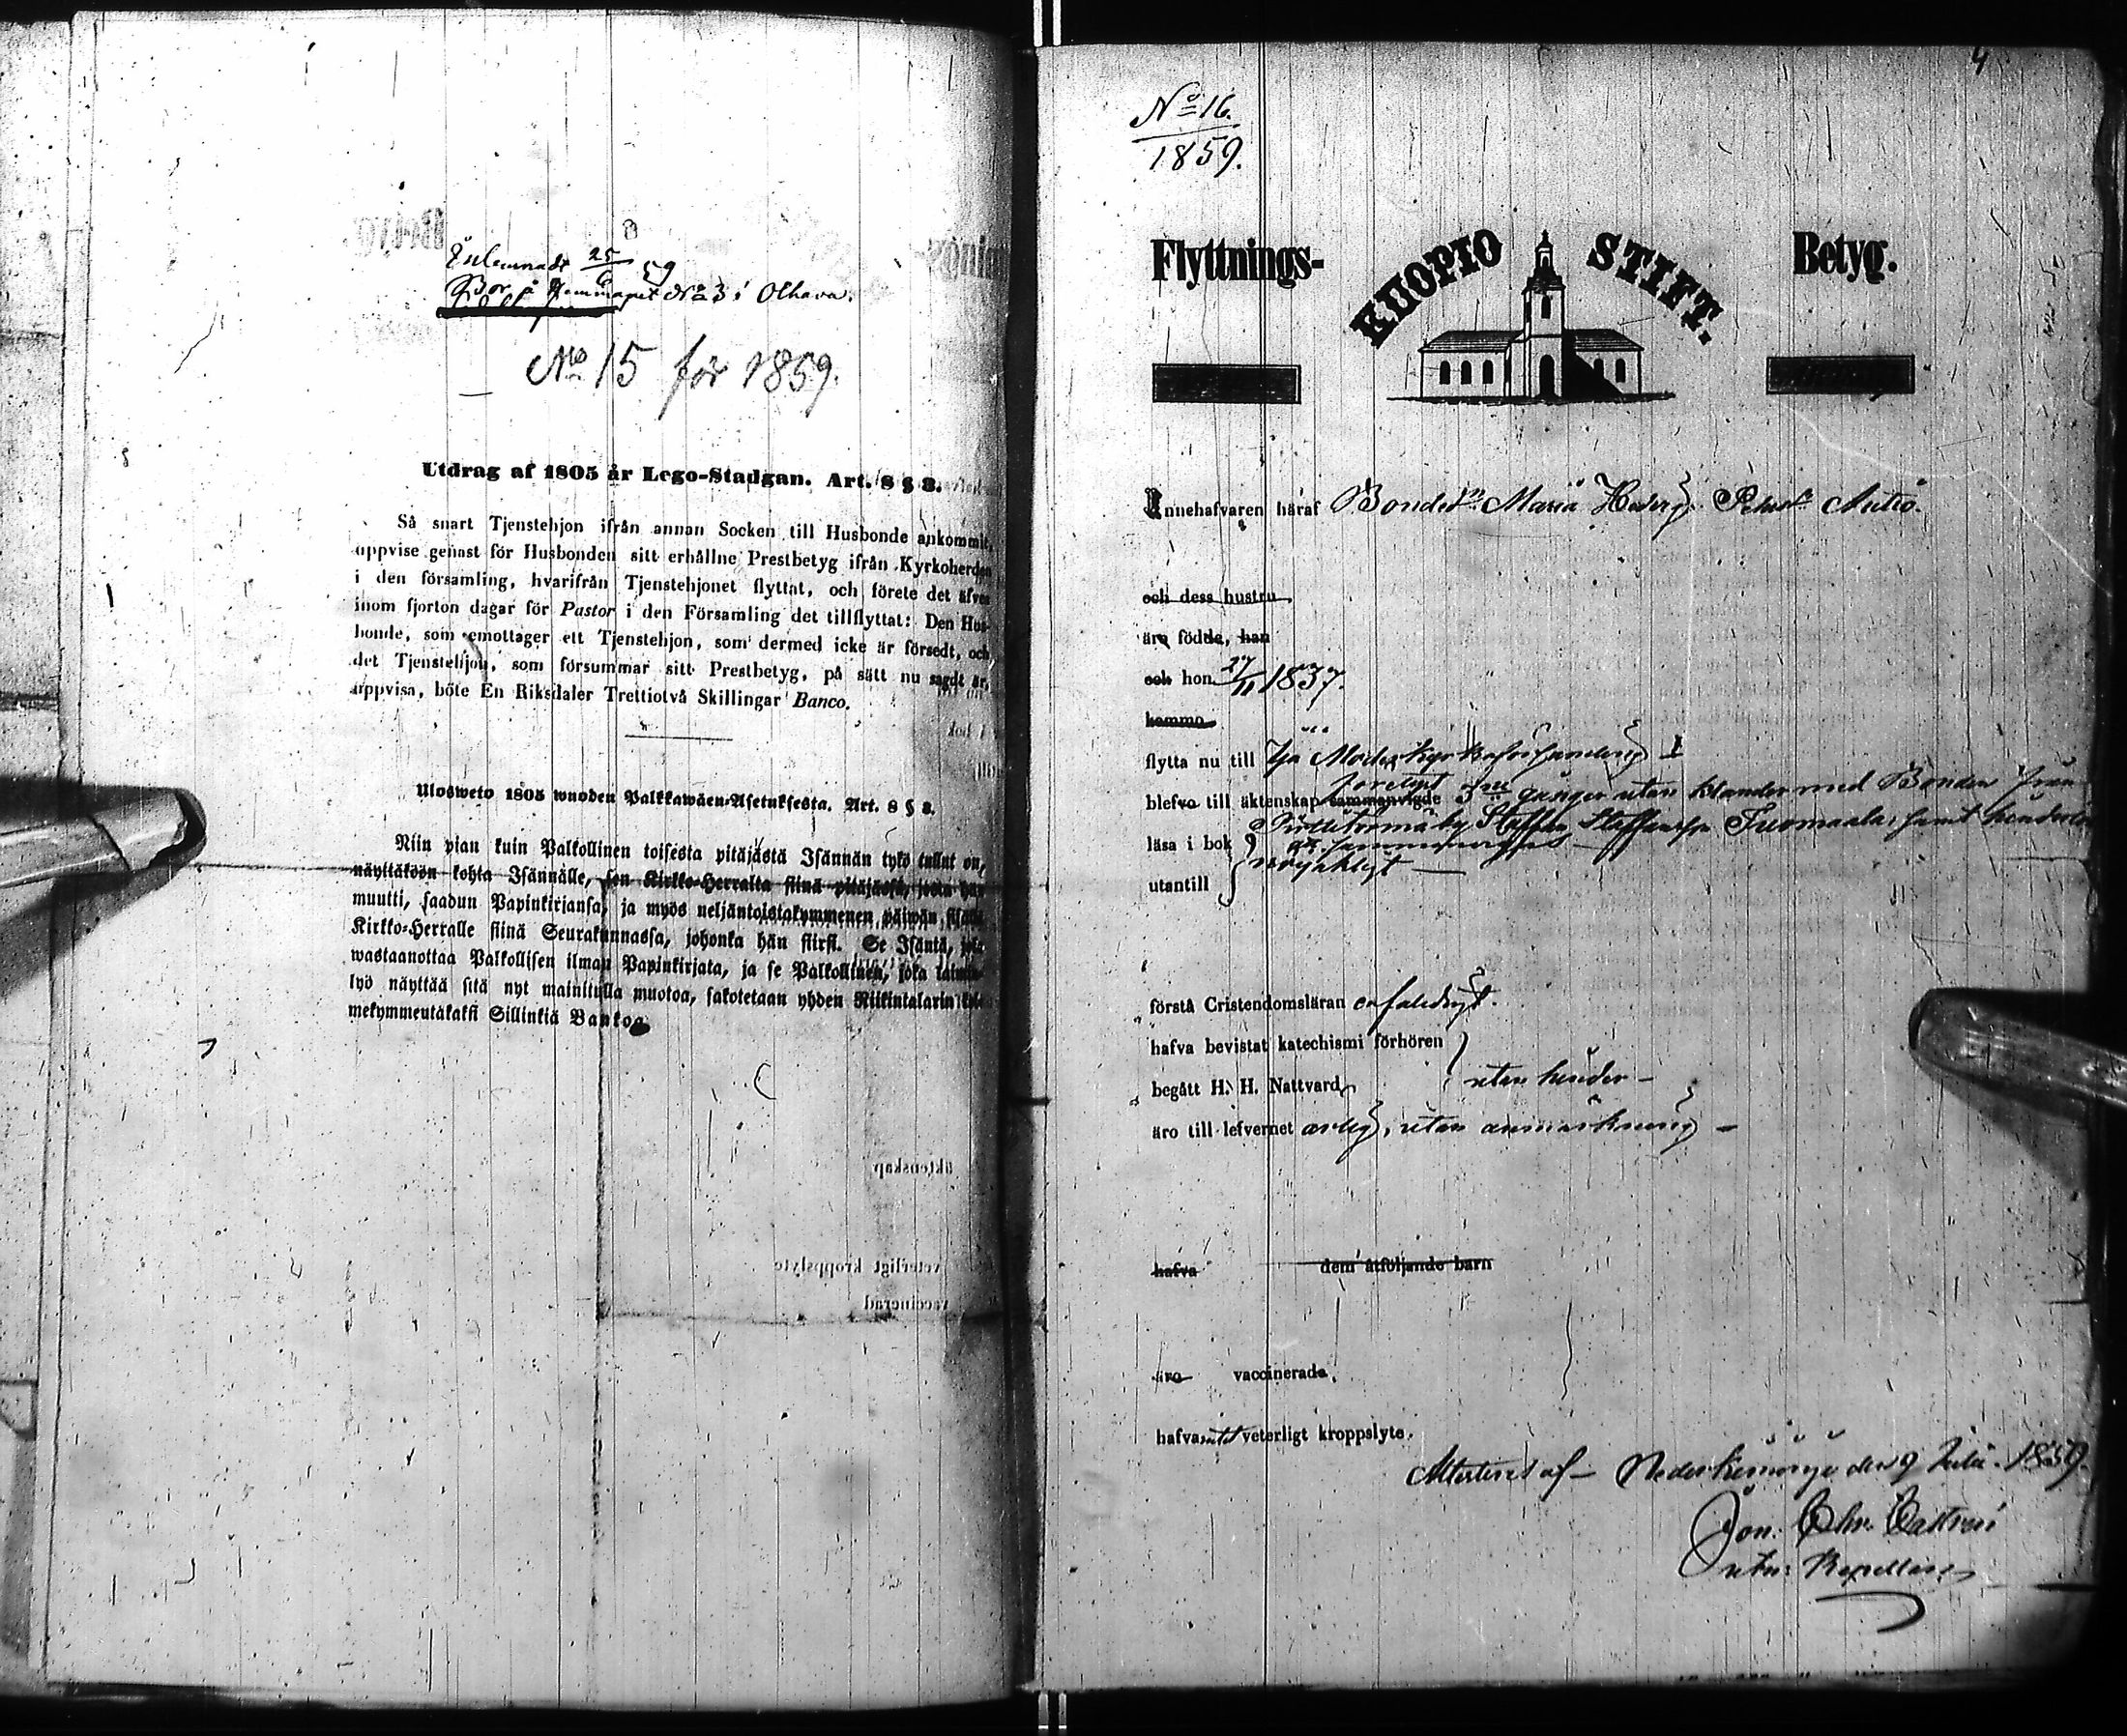 Inlemnadt 25/6 59
Bor på Hemmanet № 3 i Olhava.
№ 15 för 1859.
Utdrag af 1805 år Lego-Stadgan. Art. 8 § 3.
Så snart Tjenstehjon ifrån annan Socken till Husbonde ankommit,
uppvise genast för Husbonden sitt erhållne Prestbetyg ifrån Kyrkoherden
i den församling, hvarifrån Tjenstehjonet flyttat, och förete det äfven
inom fjorton dagar för Pastor i den Församling det tillflyttat: Den Hus-
bonde, som emottager ett Tjenstehjon, som dermed icke är försedt, och
det Tjenstehjon, som försummar sitt Prestbetyg, på sätt nu sagdt är,
uppvisa, böte En Riksdaler Trettiotvå Skillingar Banco.
Ulosweto 1805 wuoden Palkkawäen-Asetuksesta. Art. 8 § 3.
Niin pian kuin Palkollinen toisesta pitäjästä Isännän tykö tullut on,
näyttäköön kohta Isännälle, sen Kirkko-Herralta siinä pitäjässä, josta hän
muutti, saadun Papinkirjansa, ja myös neljäntoistakymmenen päiwän sisällä
Kirkko-Herralle siinä Seurakunnassa, johonka hän siirsi. Se Isäntä, joka
wastaanottaa Palkollisen ilman Papinkirjata, ja se Palkollinen, joka laimin-
lyö näyttää sitä nyt mainitulla muotoa, sakotetaan yhden Riikintalarin kol-
mekymmentäkaksi Sillinkiä Bankoa.
4
№ 16.
1859.
Flyttnings- KUOPIO STIFT. Betyg.
Innehafvaren häraf Maria Hedvig Antio.
och dess hustru
äro födde, han
och hon 27/11 1837.
komme
flytta nu till Ijo Moderkyrkoförsamling
blefvo till äktenskap sammanvigde 3ne gånger utan klander med Bonden från
läsa i bok by Staffan Staffansson Tuomaala, samt
utantill nöjaktigt
förstå Cristendomsläran enfaldigt.
hafva bevistat katechismi förhören
begått H. H. Nattvard utan hinder
äro till lefvernet ärlig, utan anmärkning
hafva dem åtföljande barn
äro vaccinerade.
hafva intet veterligt kroppslyte.
Attesteras af Nederkiminge den 9 1859.
Jon. Chr.